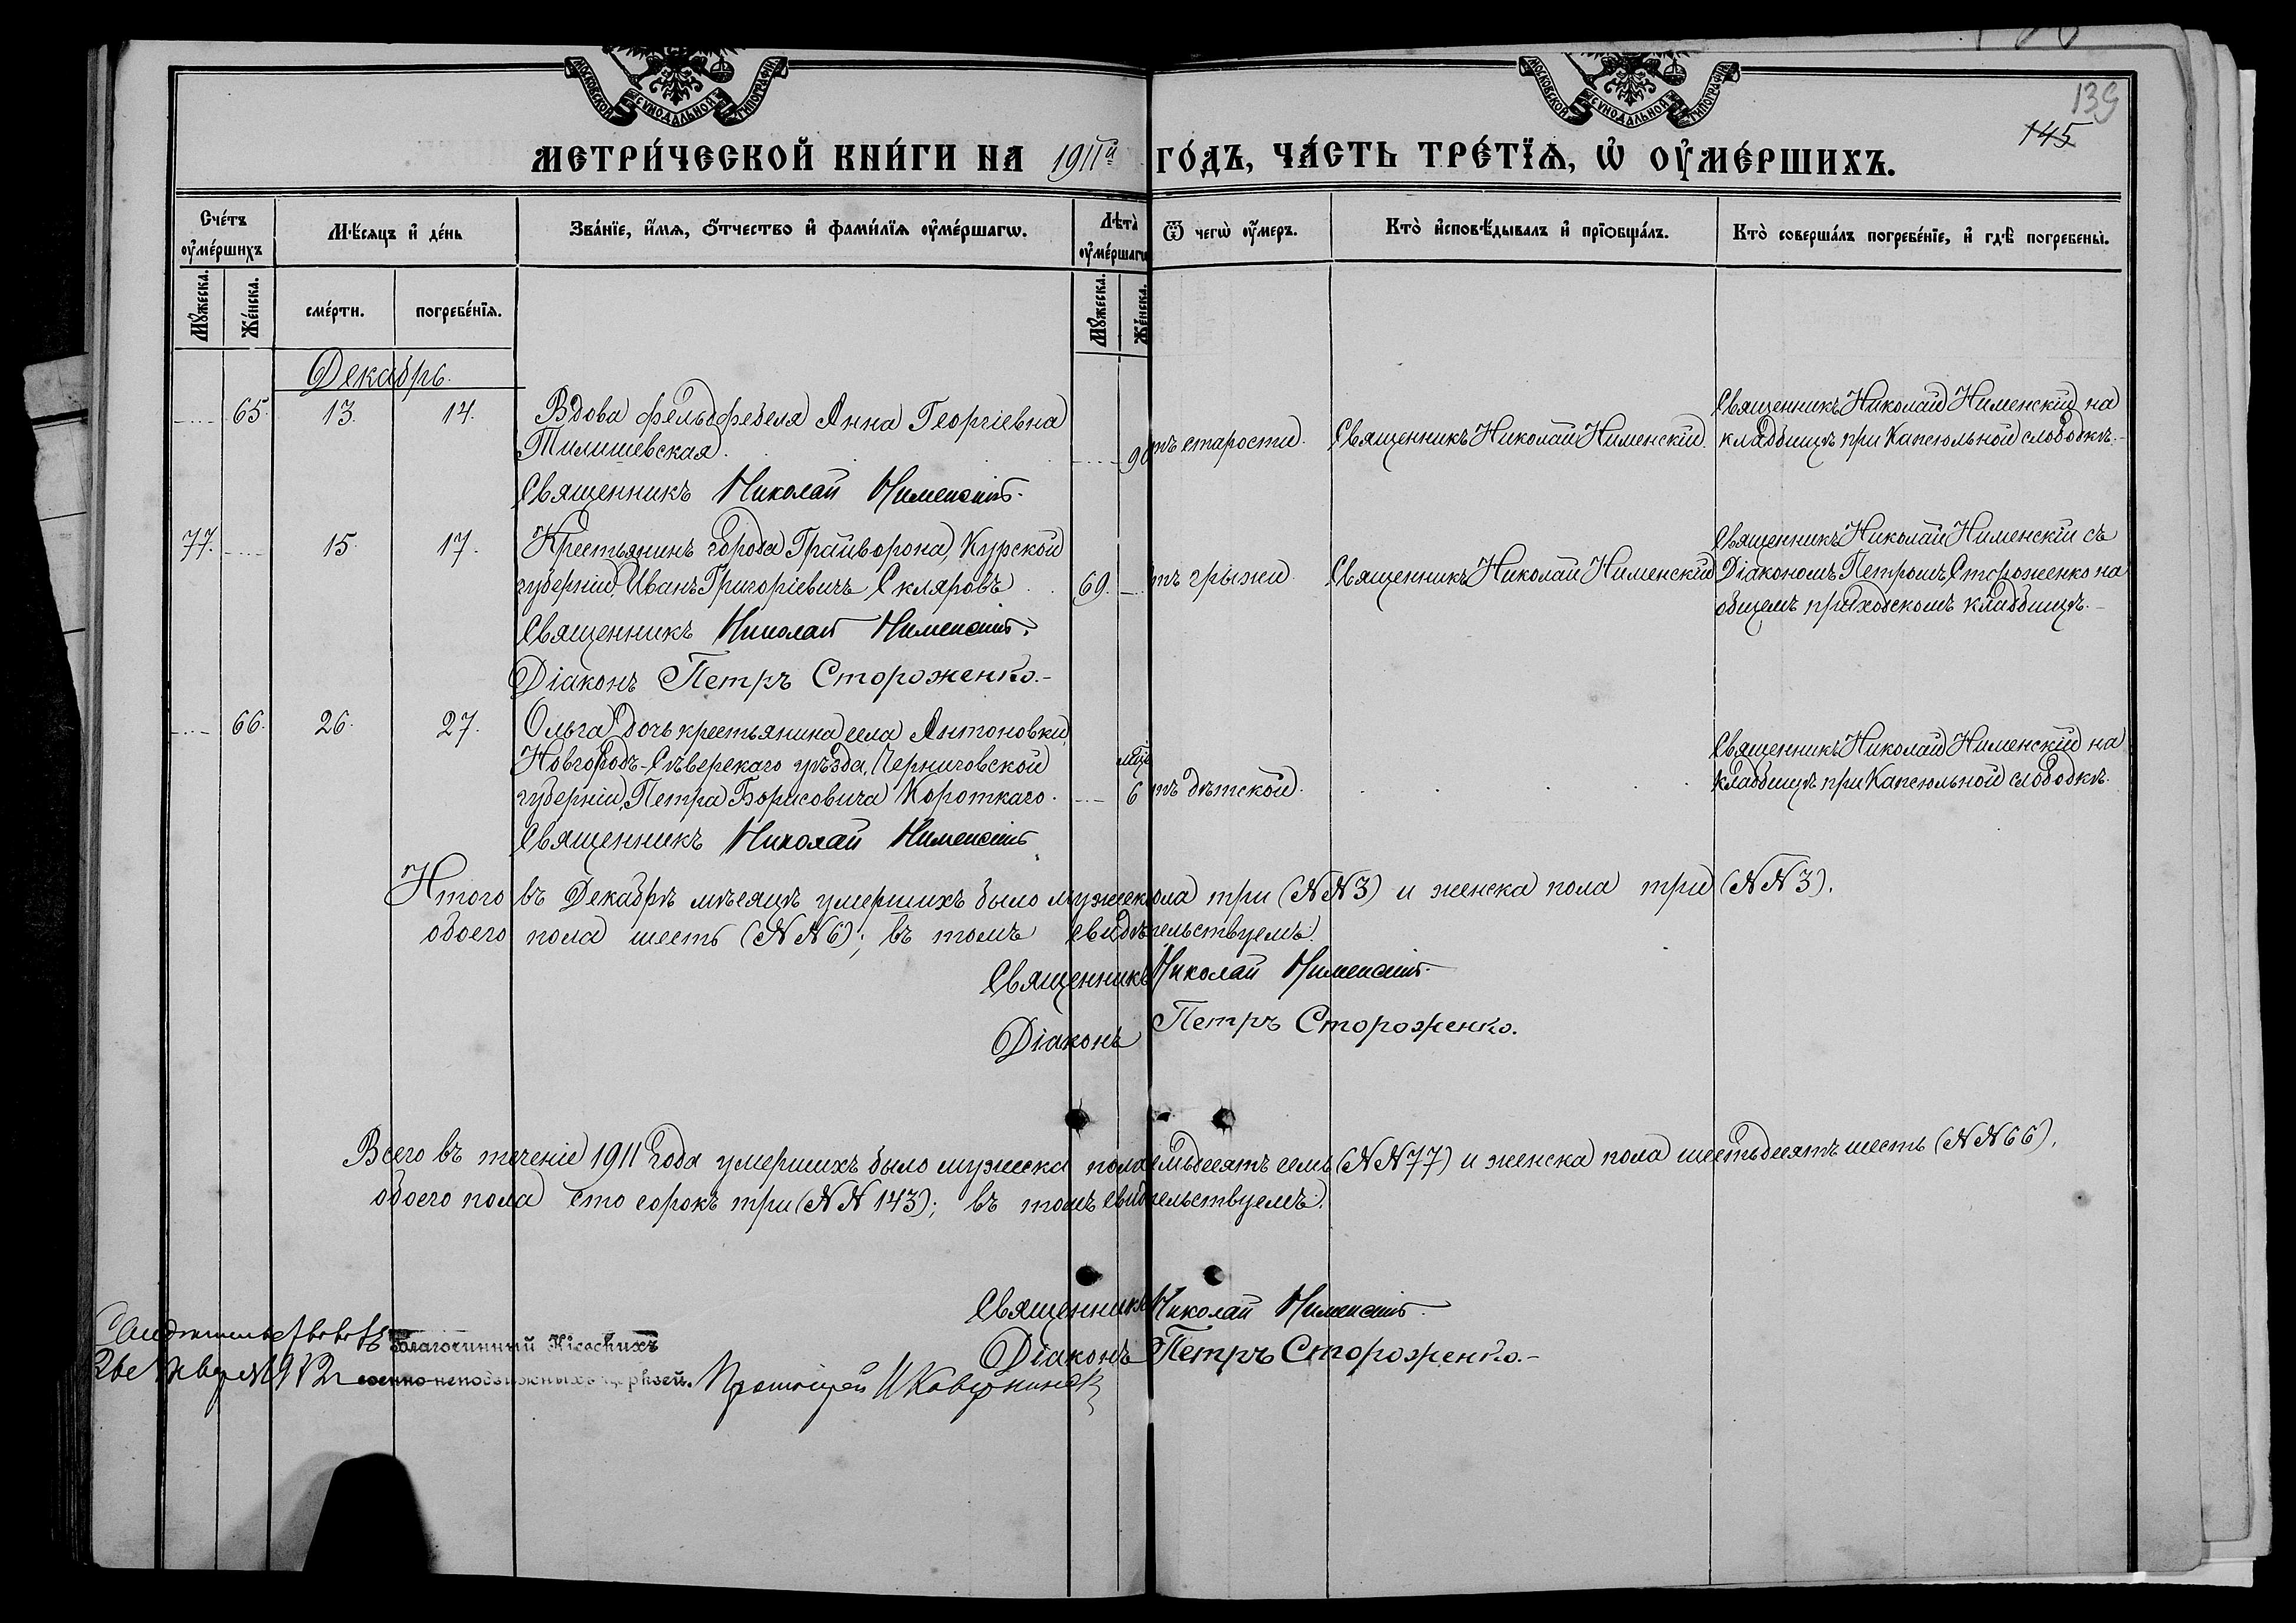 МОСКОВСКОЙ СѴНОДАЛЬНОЙ ТИПОГРАФІИ
МОСКОВСКОЙ СѴНОДАЛЬНОЙ ТИПОГРАФІИ
139
145
МЕТРИ́ЧЕСКОЙ КНИ́ГИ НА 1911й ГО́ДЪ, ЧА́СТЬ ТРЕ́ТЇѦ, Ѡ҆ ОУ҆МЕ́РШИХЪ.
Сче́тъ оу҆ме́ршихъ
Мѣ́сѧцъ и҆ де́нь
Зва́нїе, и҆́мѧ, ѻ҆́тчество и҆ фами́лїѧ оу҆ме́ршагѡ.
Лѣ́та оу҆ме́ршагѡ
Ѿ чегѡ̀ оу҆́меръ.
Кто̀ и҆сповѣ́дывалъ и҆ прїѡбща́лъ.
Кто̀ соверша́лъ погребе́нїе, и҆ гдѣ̀ погребены̀.
Мꙋ́жеска.
Же́нска.
сме́рти.
погребе́нїѧ.
Мꙋ́жеска.
Же́нска.
Декабрь.
65. 13. 14. Вдова фельдфебеля Анна Георгіевна
Тилишевская. 90
Священникъ Николай Нименскій.
тъ старости. Священникъ Николай Нименскій.
Священникъ Николай Нименскій на
кладбищѣ при Капсюльной слободкѣ.-
77. 15. 17. Крестьянинъ города Грайворона, Курской
губерніи, Иванъ Григоріевичъ Скляровъ 69.
Священникъ Николай Нименскій.
Діаконъ Петръ Стороженко.-
тъ грыжи. Священникъ Николай Нименскій
Священникъ Николай Нименскій съ
Діакономъ Петромъ Стороженко на
общемъ приходскомъ кладбищѣ.-
66. 26. 27. Ольга, дочь крестьянина села Антоновки,
Новгородъ-Сѣверскаго уѣзда, Черниговской
губерніи, Петра Борисовича Короткаго. 6
Священникъ Николай Нименскій
тъ дѣтской.
Священникъ Николай Нименскій на
кладбищѣ при Капсюльной слободкѣ.
Итого въ Декабрѣ мѣсяцѣ умершихъ было мужск пола три (NN 3) и женска пола три (NN 3).
обоего пола шесть (NN 6); въ томъ свидѣтельствуемъ.
Священникъ Николай Нименскій.
Діаконъ Петръ Стороженко.
Всего въ теченіе 1911 года умершихъ было мужска пола семьдесятъ семь (NN 77) и женска пола шестьдесятъ шесть (NN 66),
обоего пола сто сорокъ три (NN 143); въ томъ свидѣтельствуемъ.
Священникъ Николай Нименскій.
Діаконъ Петръ Стороженко.-
Благочинный Кіевскихъ
военно-неподвижныхъ церквей. Протоіерей